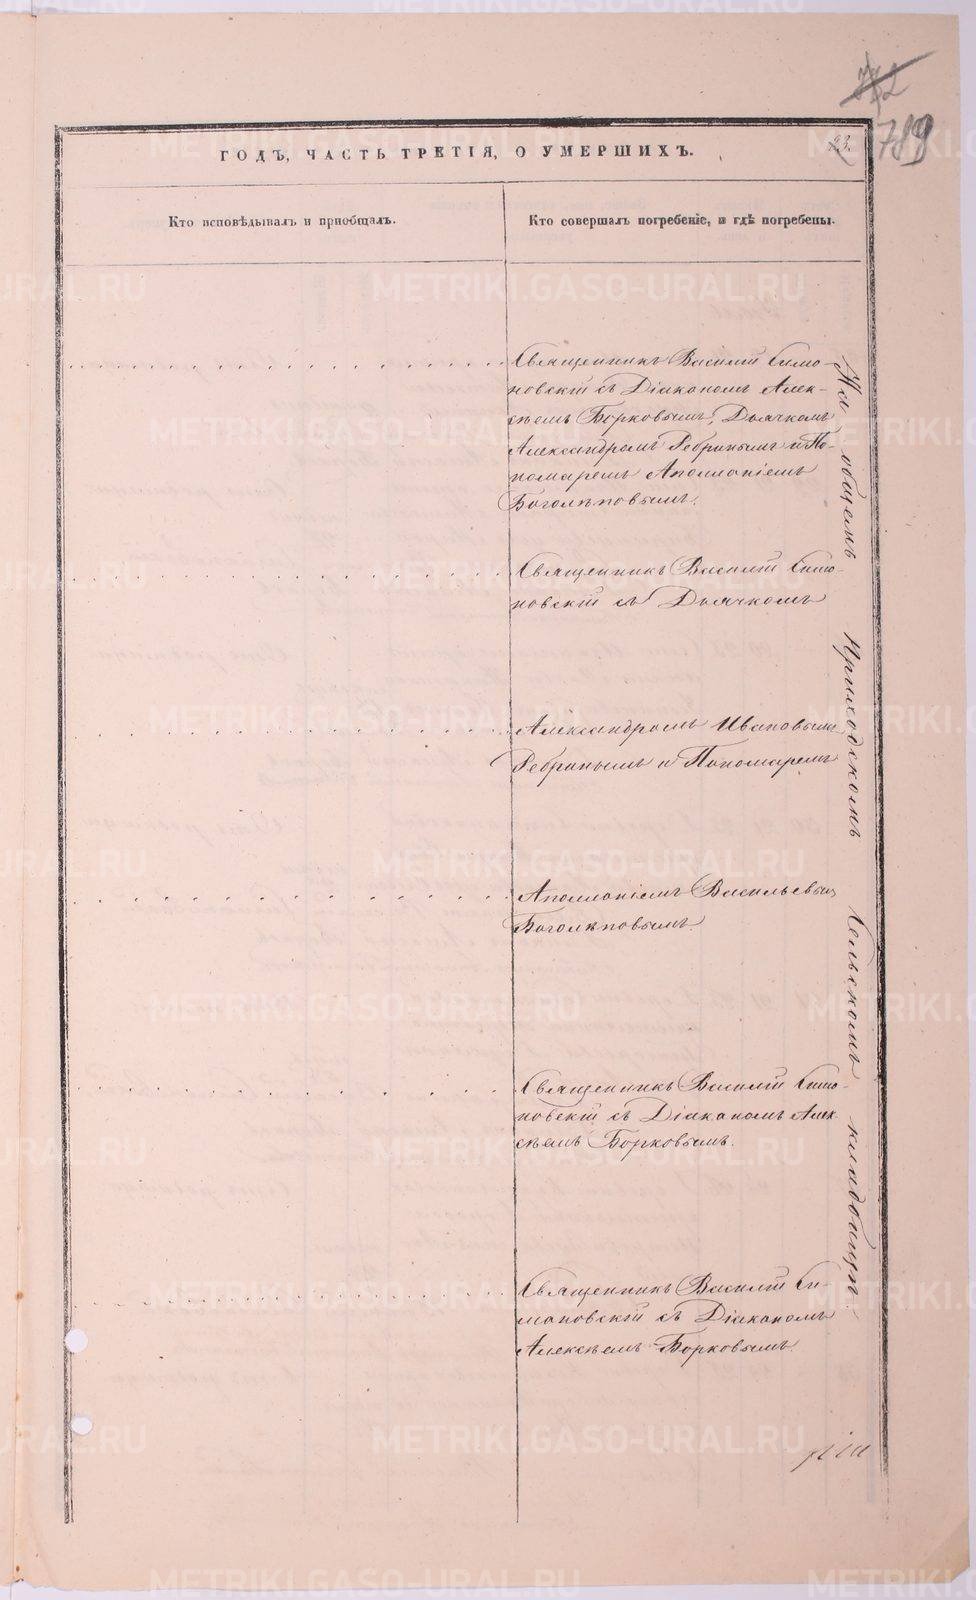 772
789
ГОДЪ, ЧАСТЬ ТРЕТІЯ, О УМЕРШИХЪ.
23.
Кто исповѣдывалъ и пріобщалъ.
Кто совершалъ погребеніе, и гдѣ погребены.
Священникъ Василій Симо-
новскій съ Діакономъ Алек-
сѣемъ Борковымъ, Дьячкомъ
Александромъ Ребринымъ и По-
номаремъ Аполлоніемъ
Боголѣповымъ.
Священникъ Василій Симо-
новскій съ Дьячкомъ
Александромъ Ивановымъ
Ребринымъ и Пономаремъ
Аполлоніемъ Васильевым
Боголѣповымъ.
Священникъ Василій Симо-
новскій съ Діакономъ Алек-
сѣемъ Борковымъ.
Священникъ Василій Си-
мановскій съ Діакономъ
Алексѣемъ Борковымъ.
На общемъ Приходскомъ Сельскомъ кладбищѣ.
METRIKI.GASO-URAL.RU